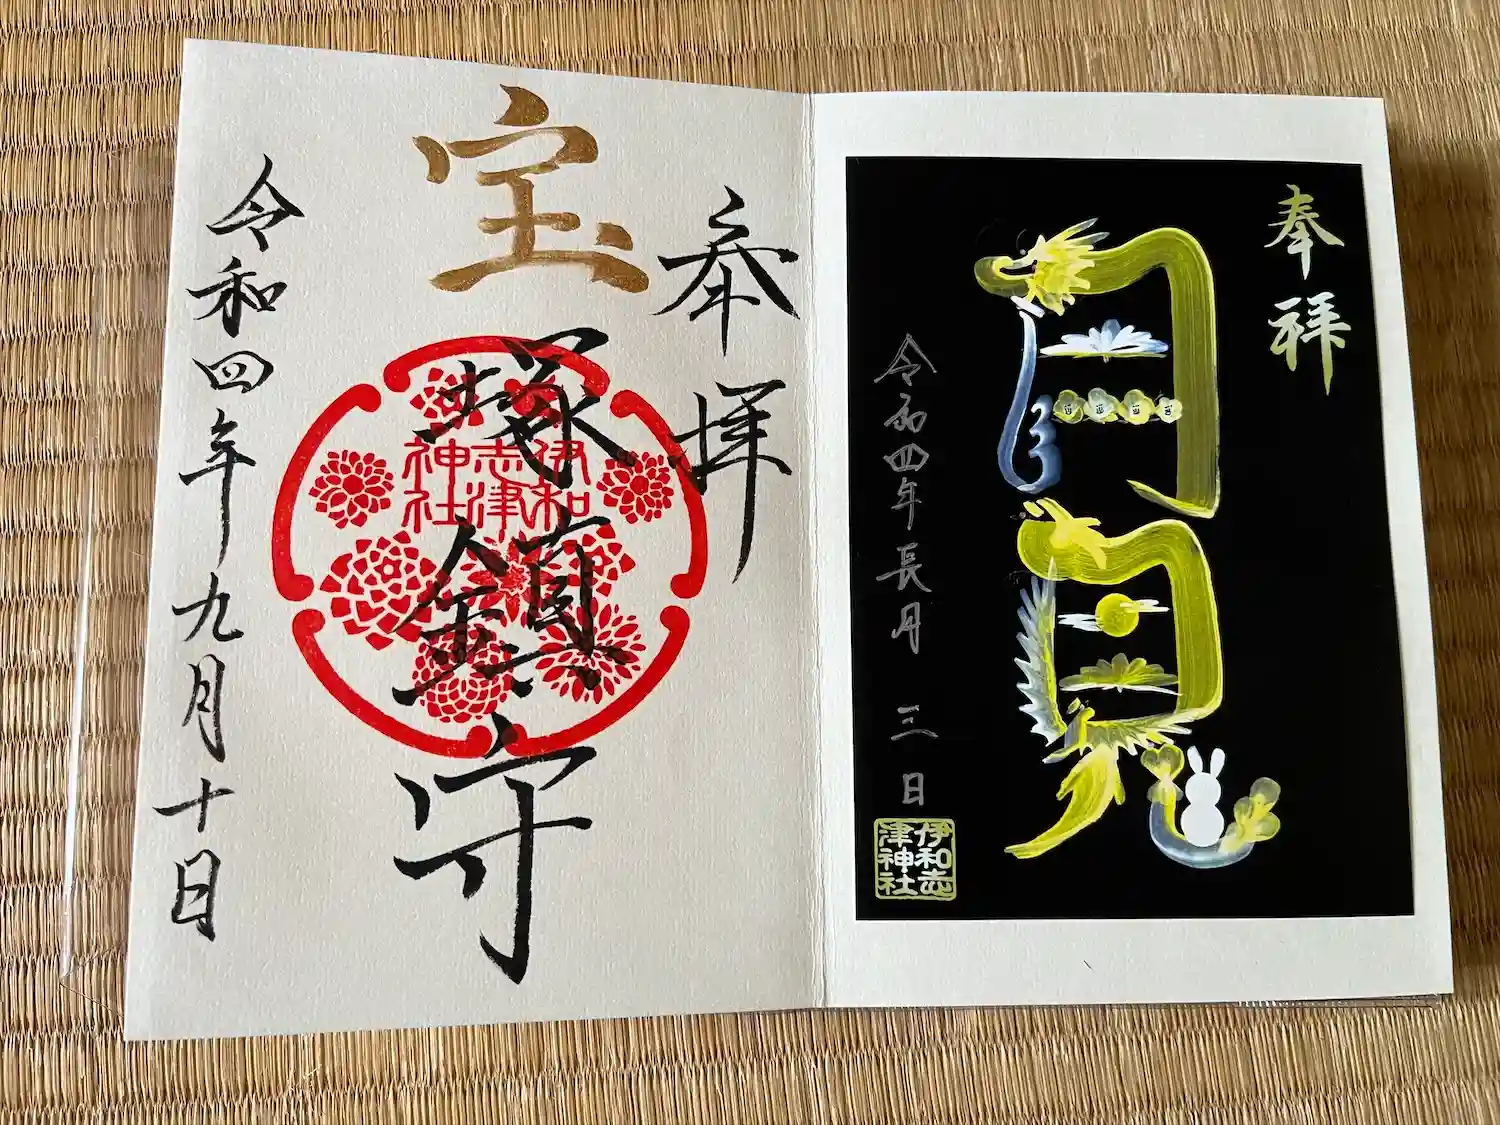 奉拝
月見
令和四年長月 三日
伊和志
津神社
奉拝
宝塚鎮守
伊和
志津
神社
令和四年九月十日